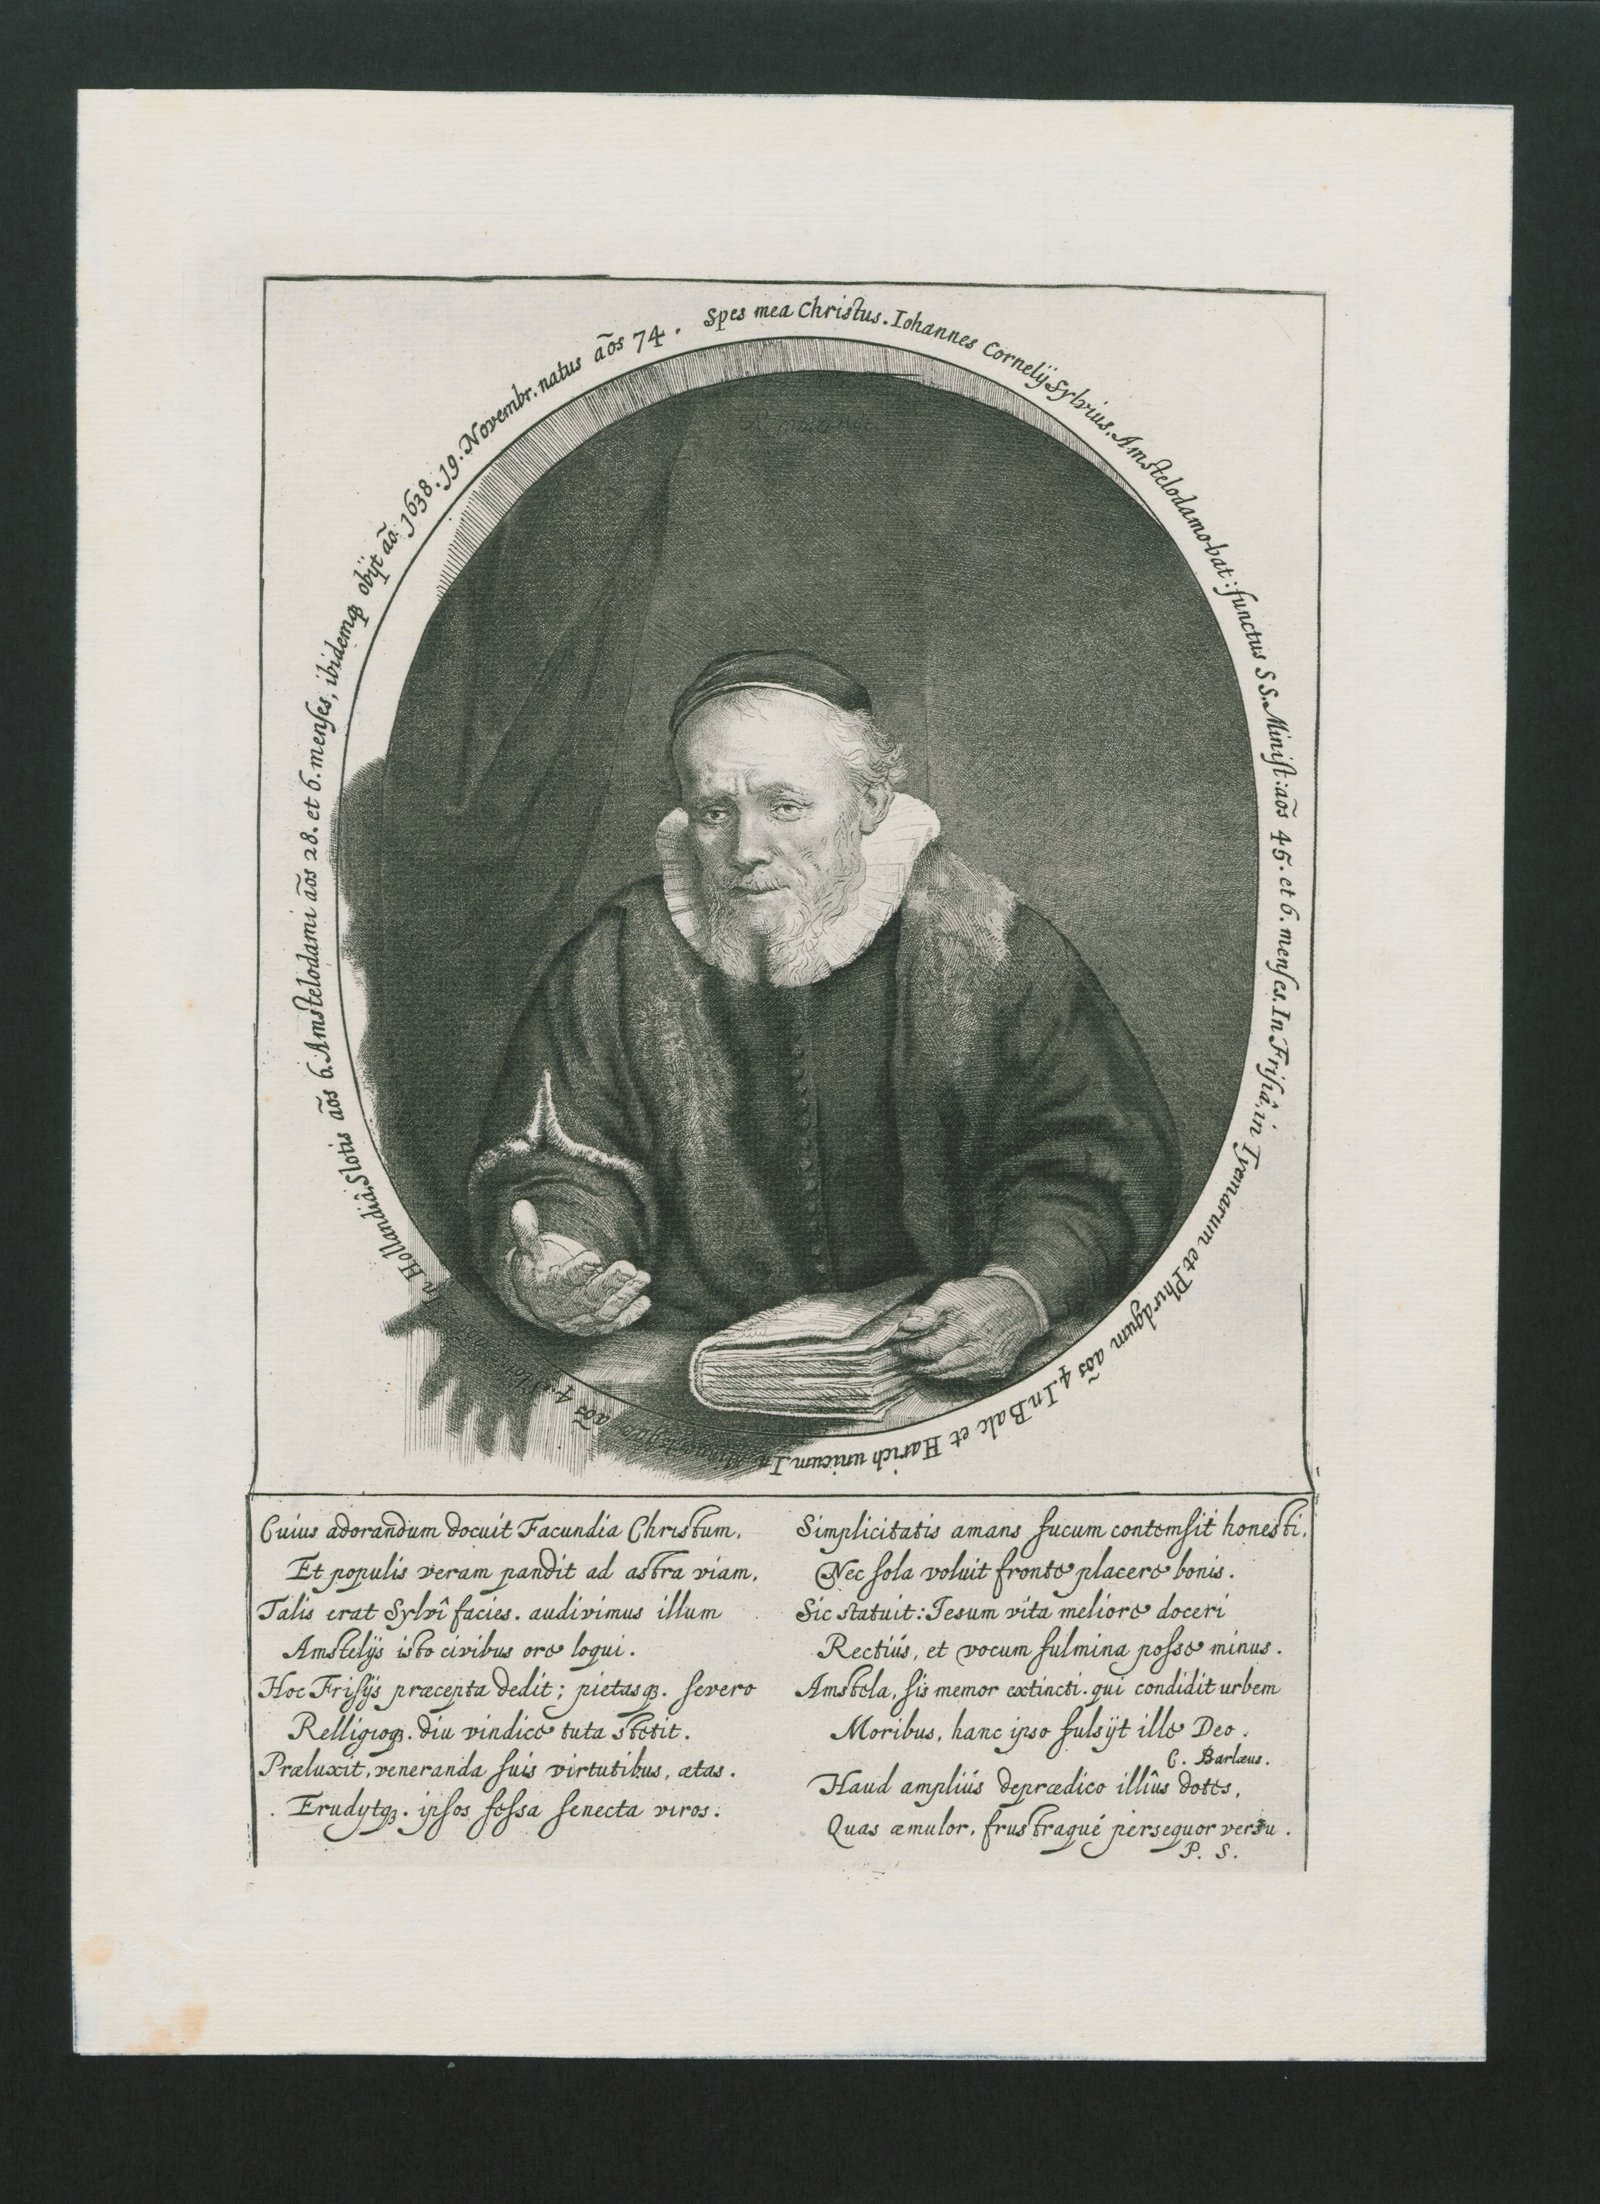 Spes mea Christus. Iohannes Cornelÿ Sylvius, Amstelodamo-bat: functus SS. Minist: aõs 45. et 6. menses. In Frisiâ, in Tyemarum et Phirdgum aõs 4. In Balc et Harich unicum. In aõs 4. In Hollandiâ, Slotis aõs 6. Amstelodami aõs 28. et 6. menses, ibidemqȝ obÿt aõ. 1638. 19. Novembr. natus aõs 74.
Cuius adorandum docuit Facundia Christum,
Et populis veram pandit ad astra viam,
Talis erat Sylvî facies. audivimus illum
Amstelÿs isto civibus ore loqui.
Hoc Frisÿs præcepta dedit; pietasqȝ. severo
Relligioqȝ. diu vindice tuta stetit.
Præluxit, veneranda suis virtutibus, ætas.
Erudytqȝ. ipsos fessa senecta viros.
Simplicitatis amans fucum contemsit honesti,
Nec sola voluit fronte placere bonis.
Sic statuit: Iesum vita meliore doceri
Rectiús, et vocum fulmina posse minus.
Amstela, sis memor extincti. qui condidit urbem
Moribus, hanc ipso fulsÿt ille Deo.
C. Barlæus.
Haud ampliús deprædico illîus dotes,
Quas æmulor, frustraqué persequor versu.
P. S.